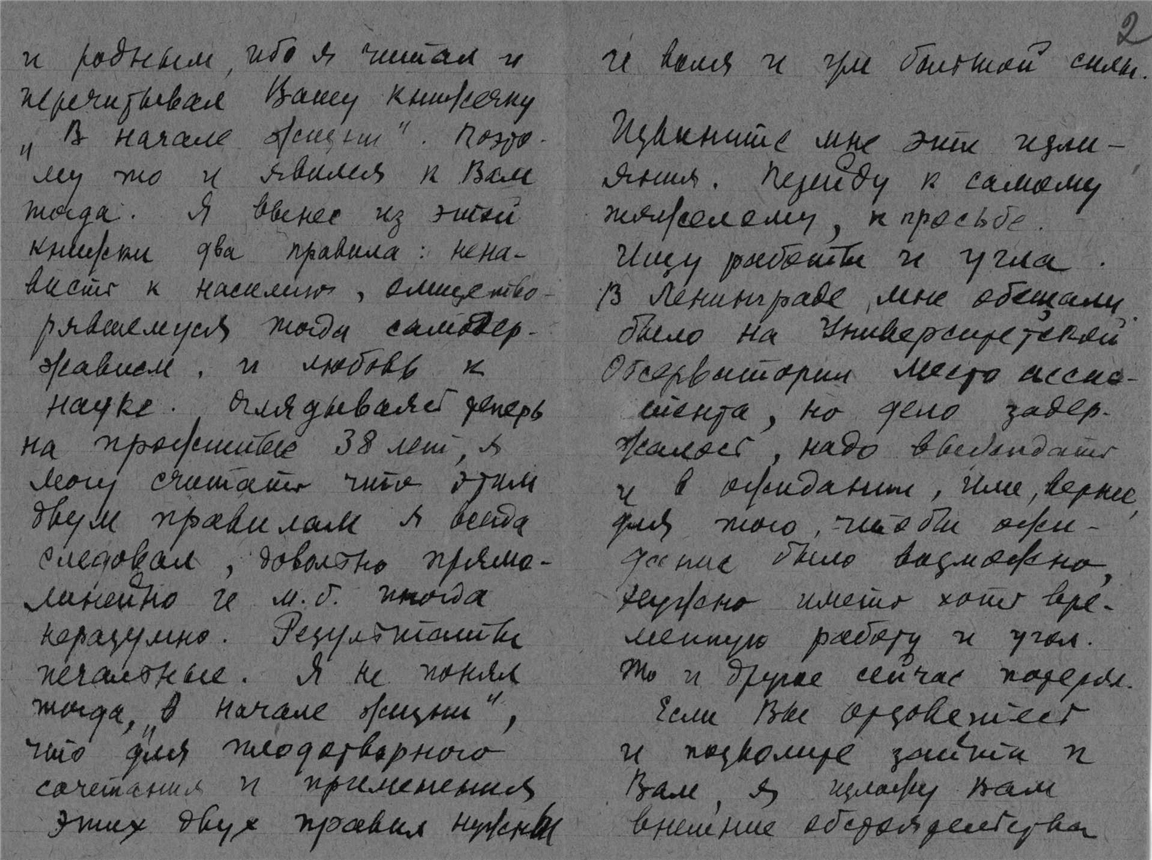 2
и родным, ибо я читал и
перечитывал Вашу книжечку
„В начале жизни“. Поэто-
му то и явился к Вам
тогда. Я вынес из этой
книжки два правила: нена-
висть к насилию, олицетво-
рявшемуся тогда самодер-
жавием, и любовь к
науке. Оглядываясь теперь
на прожитые 38 лет, я
могу считать что этим
двум правилам я всегда
следовал, довольно прямо-
линейно и м.б. иногда
неразумно. Результаты
печальные. Я не понял
тогда, „в начале жизни“,
что для плодотворного
сочетания и применения
этих двух правил нужны
и воля и ум большой силы.
Извините мне эти изли-
яния. Перейду к самому
тяжелому, к просьбе.
Ищу работы и угла.
В Ленинграде мне обещали
было на Университетской
Обсерватории место ассис-
тента, но дело задер-
жалось, надо выжидать
и в ожидании, или, вернее,
для того, чтобы ожи-
дание было возможно,
нужно иметь хоть вре-
менную работу и угол.
То и другое сейчас потерял.
Если Вы отзоветесь
и позволите зайти к
Вам, я изложу Вам
внешние обстоятельства